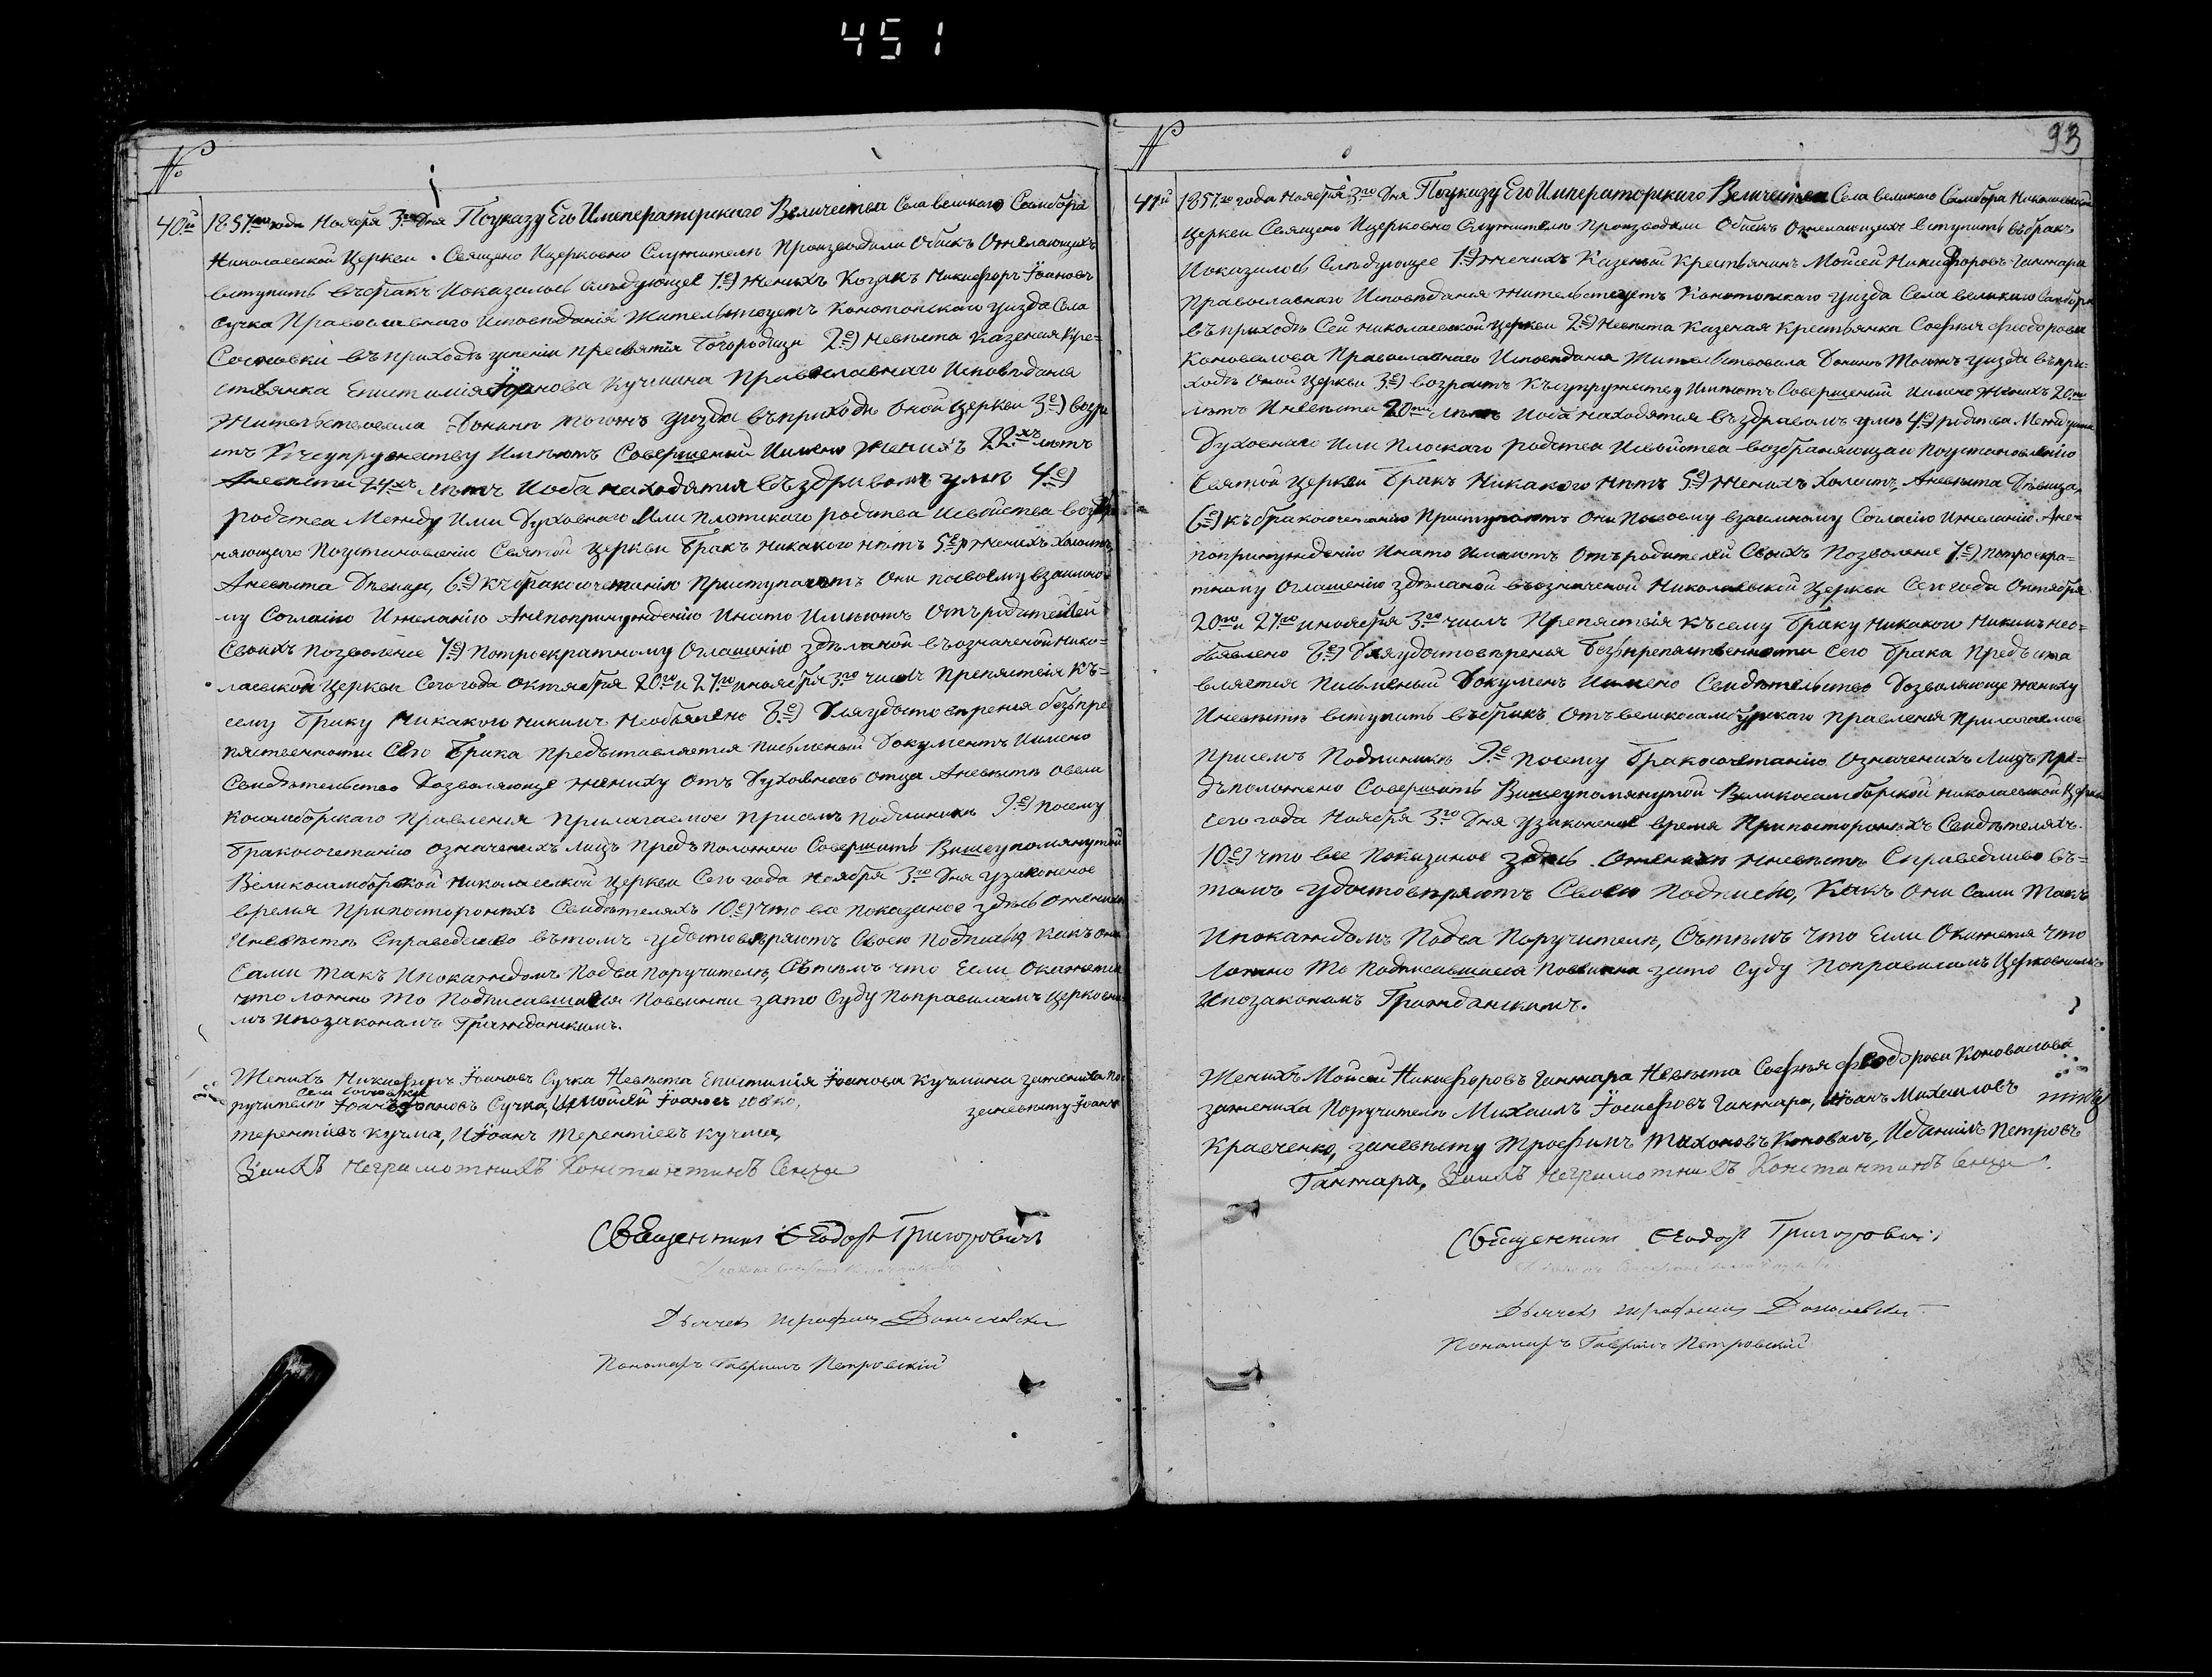 451
№
40й 1857го года Ноября 3го Дня Поуказу Его Императорскаго Величества Села великаго Самбора
Николаевской Церкви Священо Ицерковно Служители Производили Обыскъ Ожелающихъ
вступить въбракъ Иоказалось слѣдующее 1е) женихъ Козакъ Никифоръ Іоановъ
Сучка Православнаго Исповѣданія Жительствуетъ Конотопскаго уизда Села
Сосновки въприходѣ успенія пресвятія Богородици 2е) Невѣста Казеная Кре=
стьянка Епистимія Іоанова Кучмина Православнаго Исповѣданія
Жительствовала Донинѣ тогожъ уизда въприходѣ оной церкви 3е) возра
стъ Ксупружеству Имѣютъ Совершеный Имено женихъ 22хъ лѣтъ
Аневѣста 24хъ лѣтъ Иоба находятся въздравомъ умѣ 4е)
родства Между Ими Духовнаго Или плотскаго родства Исвойства возбра
няющаго Поустановленію Святой Церкви Бракъ никакого нѣтъ 5е) женихъ Холостъ,
Аневѣста Дѣвица, 6е) Къбракосочетанію Приступаютъ Они посвоему взаимно=
му Согласію Ижеланію Анепопринужденію Инато Имѣютъ Отъродителей
Своихъ позволеніе 7е) Потроекратному Оглашенію здѣланой въозначеной Нико=
лаевской Церкви Сегогода Октября 20го и 27го иноября 3го чиселъ Препятствія Къ=
сему браку Никакого никимъ необъявлено 8е) Дляудостовѣренія безъпре
пятственности Сего Брака предъставляется письменый Документъ Имено
Свидѣтельство Дозволяюще жениху отъ Духовнаго отца Аневѣстѣ Овели
косамборскаго Правленія Прилагаемое Присемъ Подлиникѣ 9е) Посему
Бракосочетанію означеныхъ Лицъ Предъ Положено Совершить Вышеупомянутой
Великосамборской Николаевской Церкви Сего года Ноября 3го Дня Узаконеное
время Припостороныхъ Свидѣтеляхъ 10е) Что все показаное здѣсь Оженихѣ
Иневѣстѣ Справедливо втомъ удостовѣряютъ Своею Подписью какъ они
Сами такъ Ипокаждомъ Подва Поручителѣ, Сътѣмъ что Если Окажется
что ложно то Подписавшиеся Повинни зато Суду Поправиламъ Церковны
мъ Ипозаконамъ Гражданскимъ.
Женихъ Никифоръ Іоановъ Сучка Невѣста Епистимія Іоанова Кучмина зажениха По
Села Сосновки
ручители Іоанъ Іоановъ Сучка, Имойсей Іоановъ Совко, заневѣсту Іоанъ
терентіевъ кучма, Иіоанъ терентіевъ кучма,
Заихъ неграмотныхъ Константинъ Сенза
Священникъ Ѳеодоръ Григоровичъ
Дьячекъ трофимъ Даниловскій
Пономаръ Гавриилъ Петровскій
№
93
41й 1857го года Ноября 3го Дня Поуказу Его Императорскаго Величества Села великаго Самбора Николаевской
Церкви Священо Ицерковно Служители Производили Обыскъ Ожелающихъ вступить въбракъ
Иоказалось Слѣдующее 1е) женихъ Казеный Крестьянинъ Мойсей Никифоровъ Ганжара
Православнаго Исповѣданія Жительствуетъ Конотопскаго уизда Села великаго Самбора
въприходѣ Сей Николаевской церкви 2е) Невѣста Казеная Крестьянка Софья феодорова
Коновалова Православнаго Исповѣданія Жительствовала Донинѣ Тогожъ уизда въпри=
ходѣ Оной Церкви 3е) возрастъ Късупружеству Имѣютъ Совершеный Имено женихъ 20ти
лѣтъ Иневѣста 20ти лѣтъ Иоба находятся въздравомъ умѣ 4е) родства Междуими
Духовнаго Или Плоскаго родства Исвойства возбраняющаго Поустановленію
Святой Церкви Бракъ Никакого нѣтъ 5е) женихъ Холостъ, Аневѣста Дѣвица,
6е) къбракосочетанію Приступаютъ Они Посвоему взаимному Согласію Ижеланію Ане=
попринужденію Инато Имѣютъ Отъродителей Своихъ Позволеніе 7е) потроекра=
тному Оглашенію здѣланой въозначеной Николаевской Церкви Сего года Октября
20го и 27го иноября 3го чиселъ Препятствія Къ сему браку Никакого Никимъ нео=
бъявлено 8е) Дляудостовѣренія безъпрепятственности Сего брака Предъста
вляется Письменый Докуменъ Имено Свидѣтельство Дозволяюще жениху
Иневѣстѣ вступить въбракъ отъвеликосамбурскаго правленія Прилагаемое
Присемъ Подлиникѣ 9е Посему Бракосочетанію Означеныхъ Лицъ пре=
дъположено Совершить Вишеупомянутой Великосамборской Николаевской Церкви
Сего года Ноября 3го Дня узаконеное время Припостороныхъ Свидѣтеляхъ.
10е) что все Показаное здѣсь Оженихѣ Иневѣстѣ Справедливо въ=
томъ удостовѣряютъ Своею Подписью, Какъ Они Сами Такъ
Ипокаждомъ Подва Поручителѣ, Сътѣмъ что Если Окажется что
Ложно то Подписавшиеся Повинни зато Суду Поправиламъ Церковнимъ
Ипозаконамъ Гражданскимъ.
Женихъ Мойсей Никифоровъ Ганжара Невѣста Софья феодорова Коновалова
зажениха Поручители Михаилъ Іосифовъ Ганжара, Иіоанъ Михаиловъ
Кравченко, заневѣсту Трофимъ Тихоновъ Коновалъ, Иданіилъ Петровъ
Ганжара, Заихъ неграмотныхъ Константинъ Сенза.
Священникъ Ѳеодоръ Григоровичъ
Дьячекъ трофимъ Даниловскій
Пономаръ Гавриилъ Петровскій